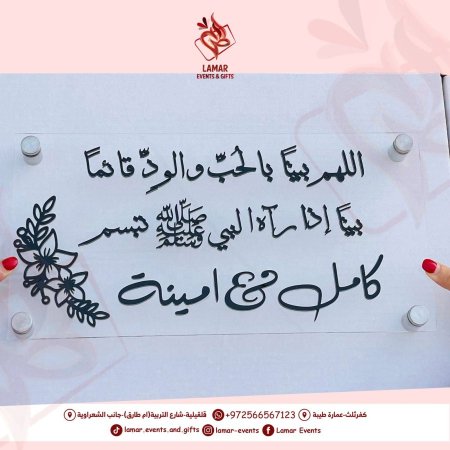 LAMAR
EVENTS & GIFTS
اللهم بيتًا بالحُبّ والودِّ قائمًا
بيتًا إذا رآه النبي ﷺ تبسم
كامل امينة
كفرثلث-عمارة طيبة
+972566567123
قلقيلية-شارع التربية(ام طارق)-جانب الشعراوية
lamar.events.and.gifts
lamar-events
Lamar Events